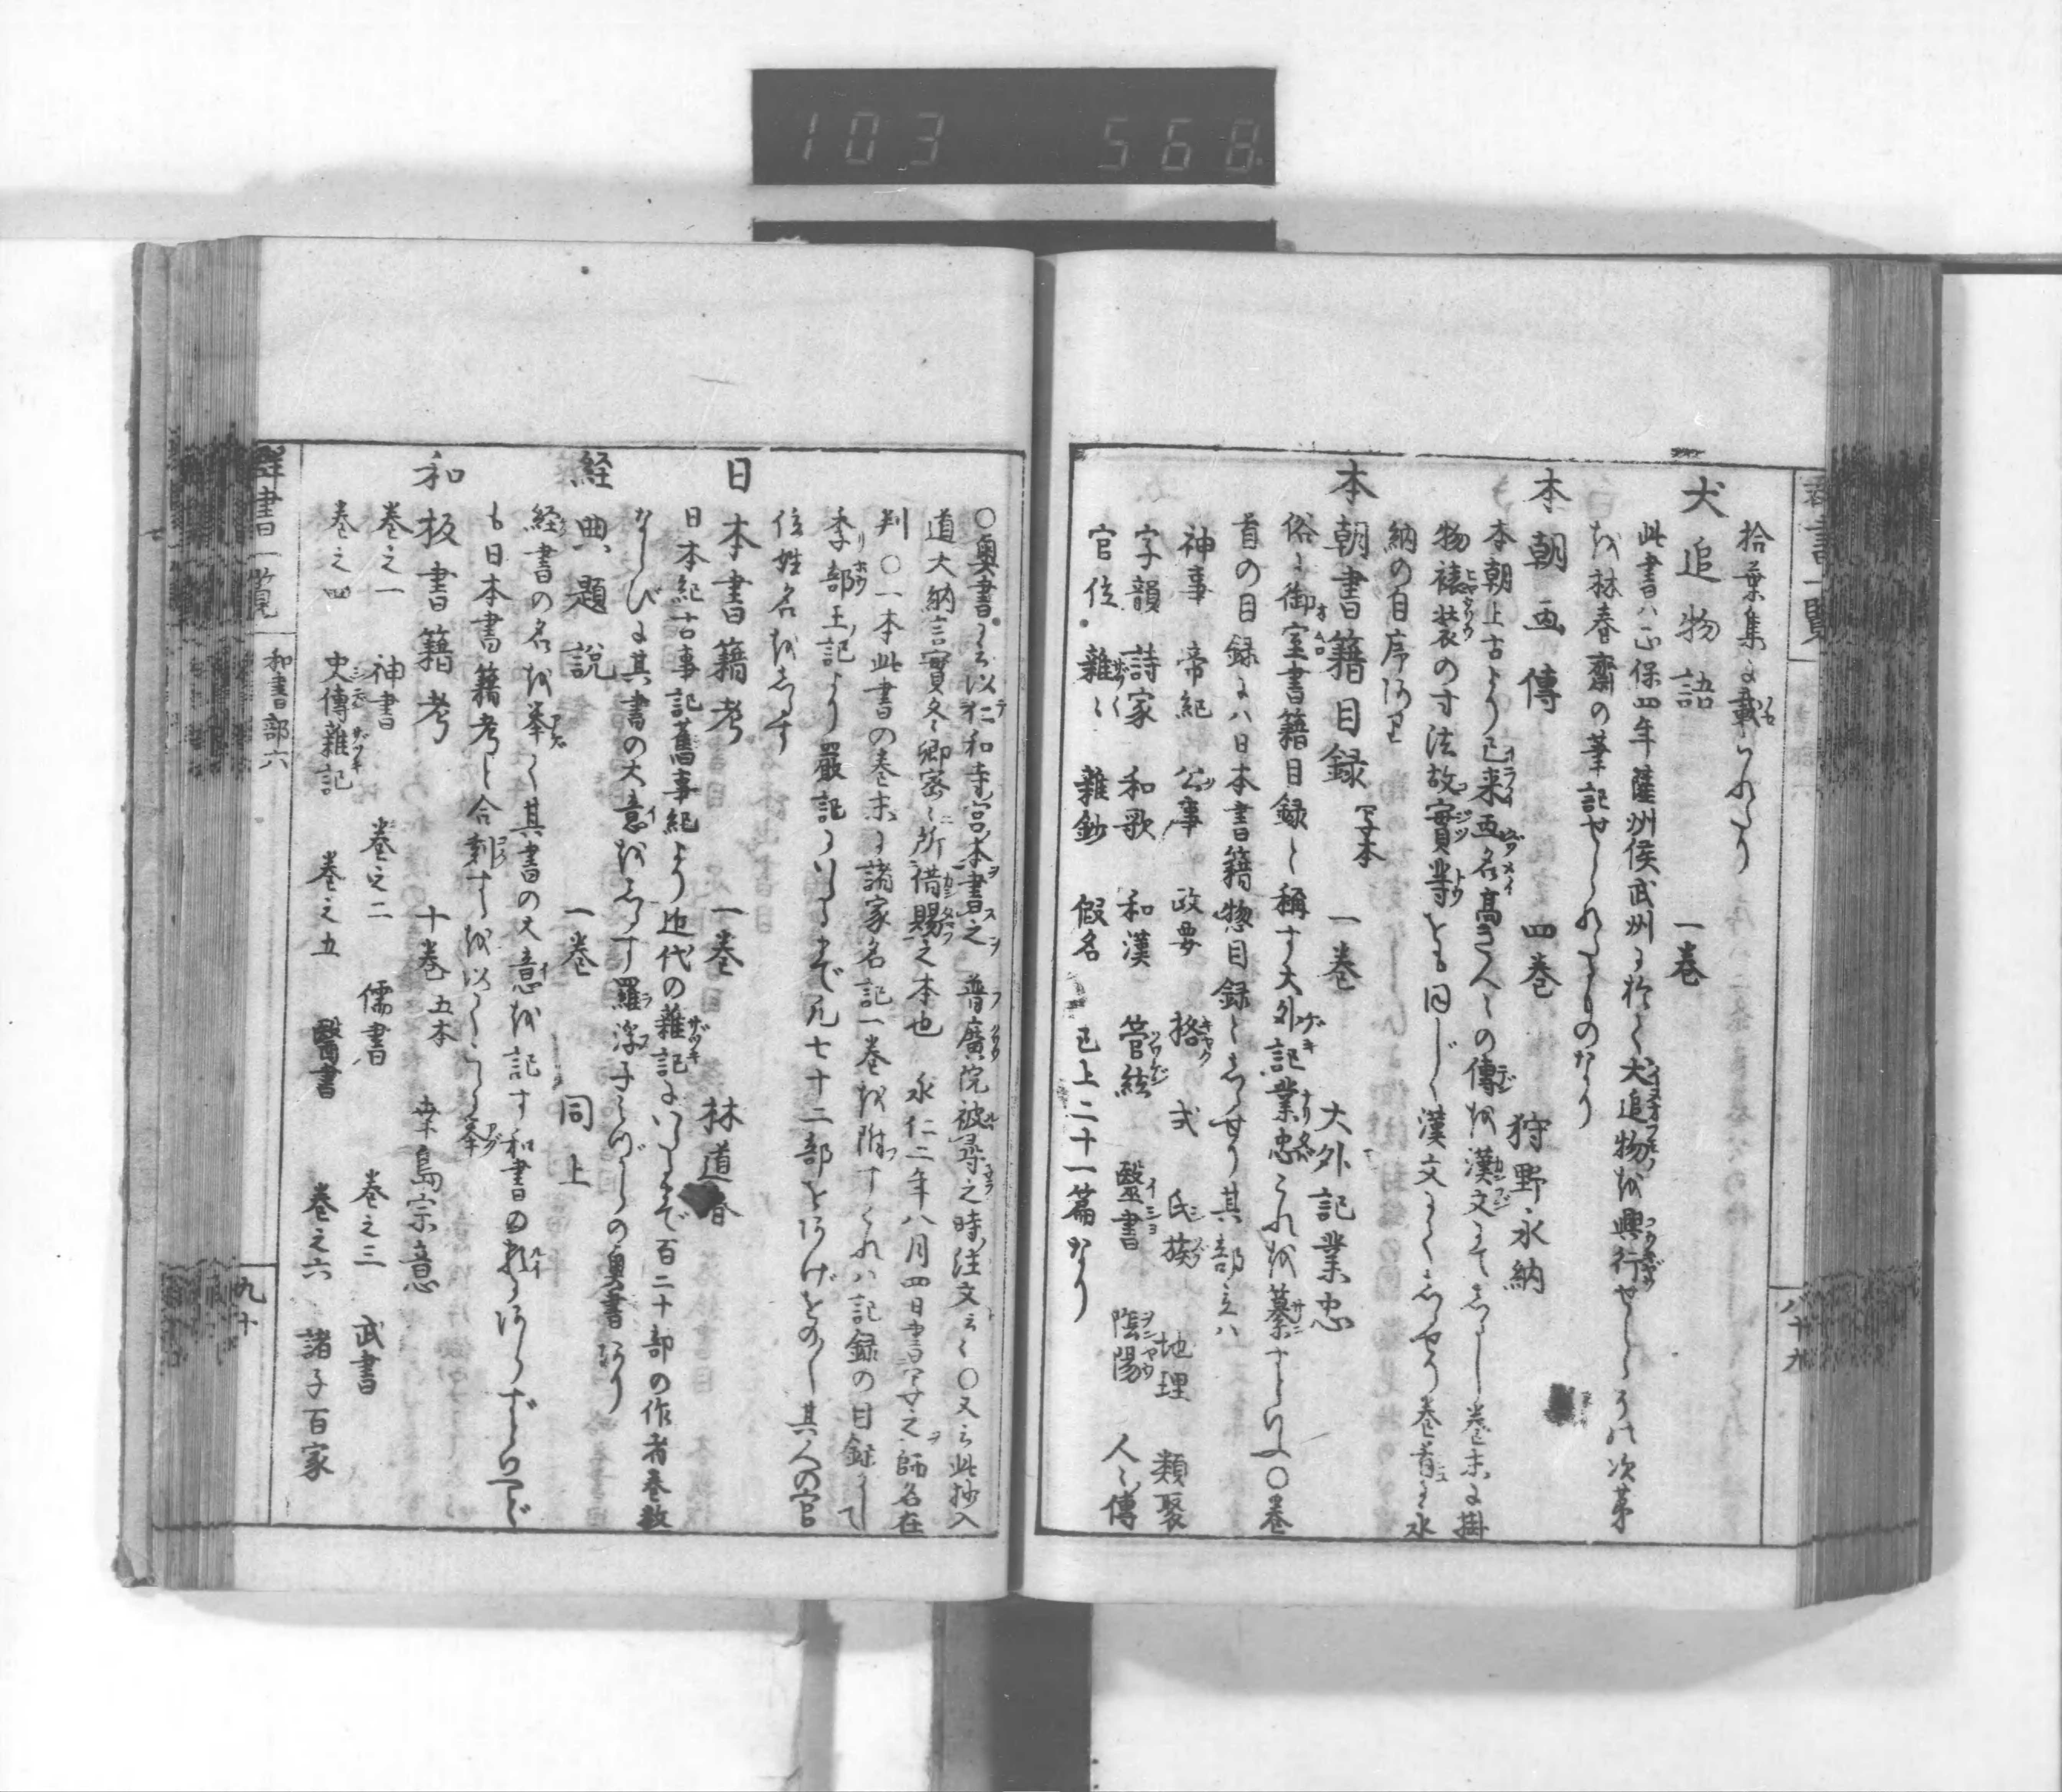 103 568
群書一覧
八十九
拾葉集に載られたり
犬追物語 一巻
此書ハ正保四年薩州侯武州に於て犬追物を興行せしときの次第
を林春齋の筆記せられしものなり
本朝画傳 四巻 狩野永納
本朝上古より已来画名高き人々の傳を漢文にてしるし巻末に掛
物裱装の寸法故實等をも同じく漢文にてしるせり巻首に永
納の自序あり
本朝書籍目録 写本 一巻 大外記業忠
俗に御室書籍目録と称す大外記業忠これを纂すといふ〇巻
首の目録にハ日本書籍惣目録としるせり其部立ハ
神事 帝紀 公事 政要 格 式 氏族 地理 類聚
字韻 詩家 和歌 和漢 管絃 醫書 陰陽 人々傳
官位 雜々 雜鈔 假名 已上二十一篇なり
〇奥書に云以仁和寺宮本書之 普廣院被尋之時注文云々〇又云此抄入
道大納言實冬卿密々所借賜之本也 永仁二年八月四日書写之師名在
判 〇一本此書の巻末に諸家名記一巻を附すこれハ記録の目録にして
季部王記より嚴記にいたるまで凡七十二部をあげをのく其人の官
位姓名をしるす
日本書籍考 一巻 林道春
日本紀古事記舊事紀より近代の雜記にいたるまで百二十部の作者巻数
ならびに其書の大意をしるす羅浮子みづからの奥書あり
経典題説 一巻 同上
経書の名を挙て其書の大意を記す和書の類にあらずといへど
も日本書籍考と合刻するを以てこゝに挙
和板書籍考 十巻 五本 幸島宗意
巻之一 神書 巻之二 儒書 巻之三 武書
巻之四 史傳雜記 巻之五 醫書 巻之六 諸子百家
群書一覧 和書部六
九十